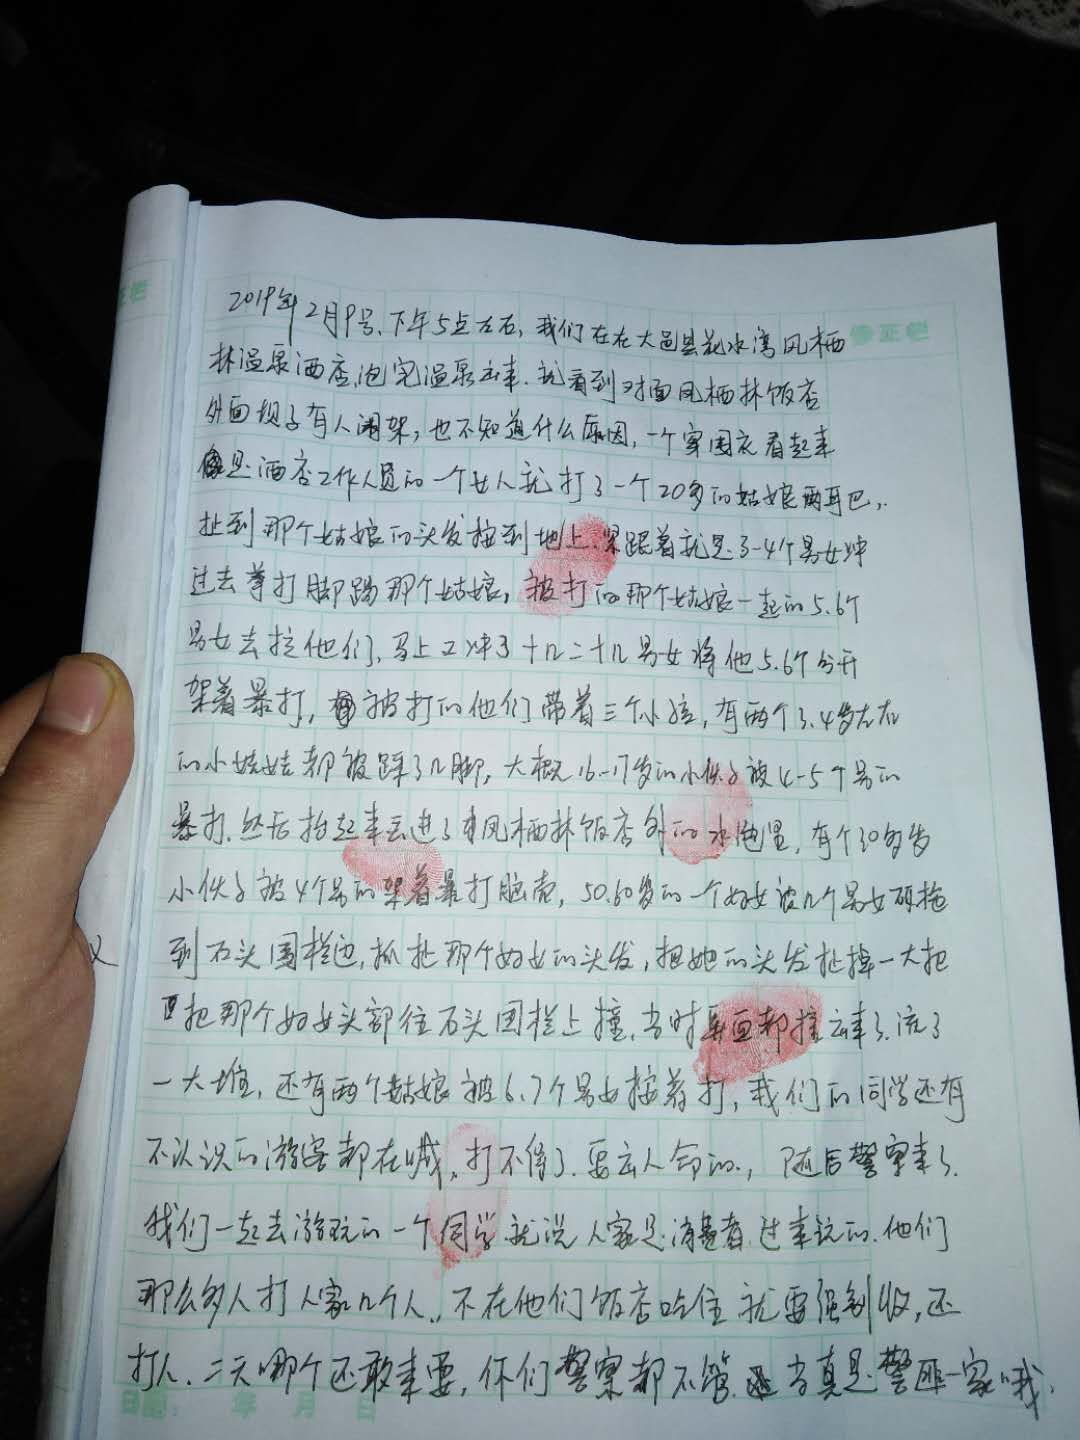 正栏
修正栏
2019年2月9号、下午5点左右，我们在在大邑县花水湾凤栖
林温泉酒店，泡完温泉出来．就看到对面凤栖林饭店
外面坝子有人闹架，也不知道什么原因，一个穿围衣看起来
像是酒店工作人员的一个女人就打了一个20多的姑娘两耳巴，
扯到那个姑娘的头发按到地上．紧跟着就是3-4个男女冲
过去拳打脚踢那个姑娘，被打的那个姑娘一起的5.6个
男女去拉他们，马上又冲了十几二十几男女将他5.6个分开
架着暴打，被打的他们带着三个小孩，有两个3.4岁左右
的小娃娃都被踩了几脚，大概16-17岁的小伙子被4-5个男的
暴打．然后抬起来丢进了凤栖林饭店外的水池里，有个30多岁
小伙子被4个男的架着暴打脑壳，50.60岁的一个妇女被几个男女硬拖
到石头围栏边，抓扯那个妇女的头发，把她的头发扯掉一大把
把那个妇女头部往石头围栏上撞，当时都撞出来了．流了
一大堆，还有两个姑娘被6.7个男女按着打，我们的同学还有
不认识的游客都在喊，打不得了．要出人命的．，随后警察来了．
我们一起去游玩的一个同学就说人家是消费者，过来玩的．他们
那么多人打人家几个人．，不在他们饭店吃住就要强制收，还
打人．二天哪个还敢来要，你们警察都不管．当真是警匪一家哦．
日期：　年　月　日